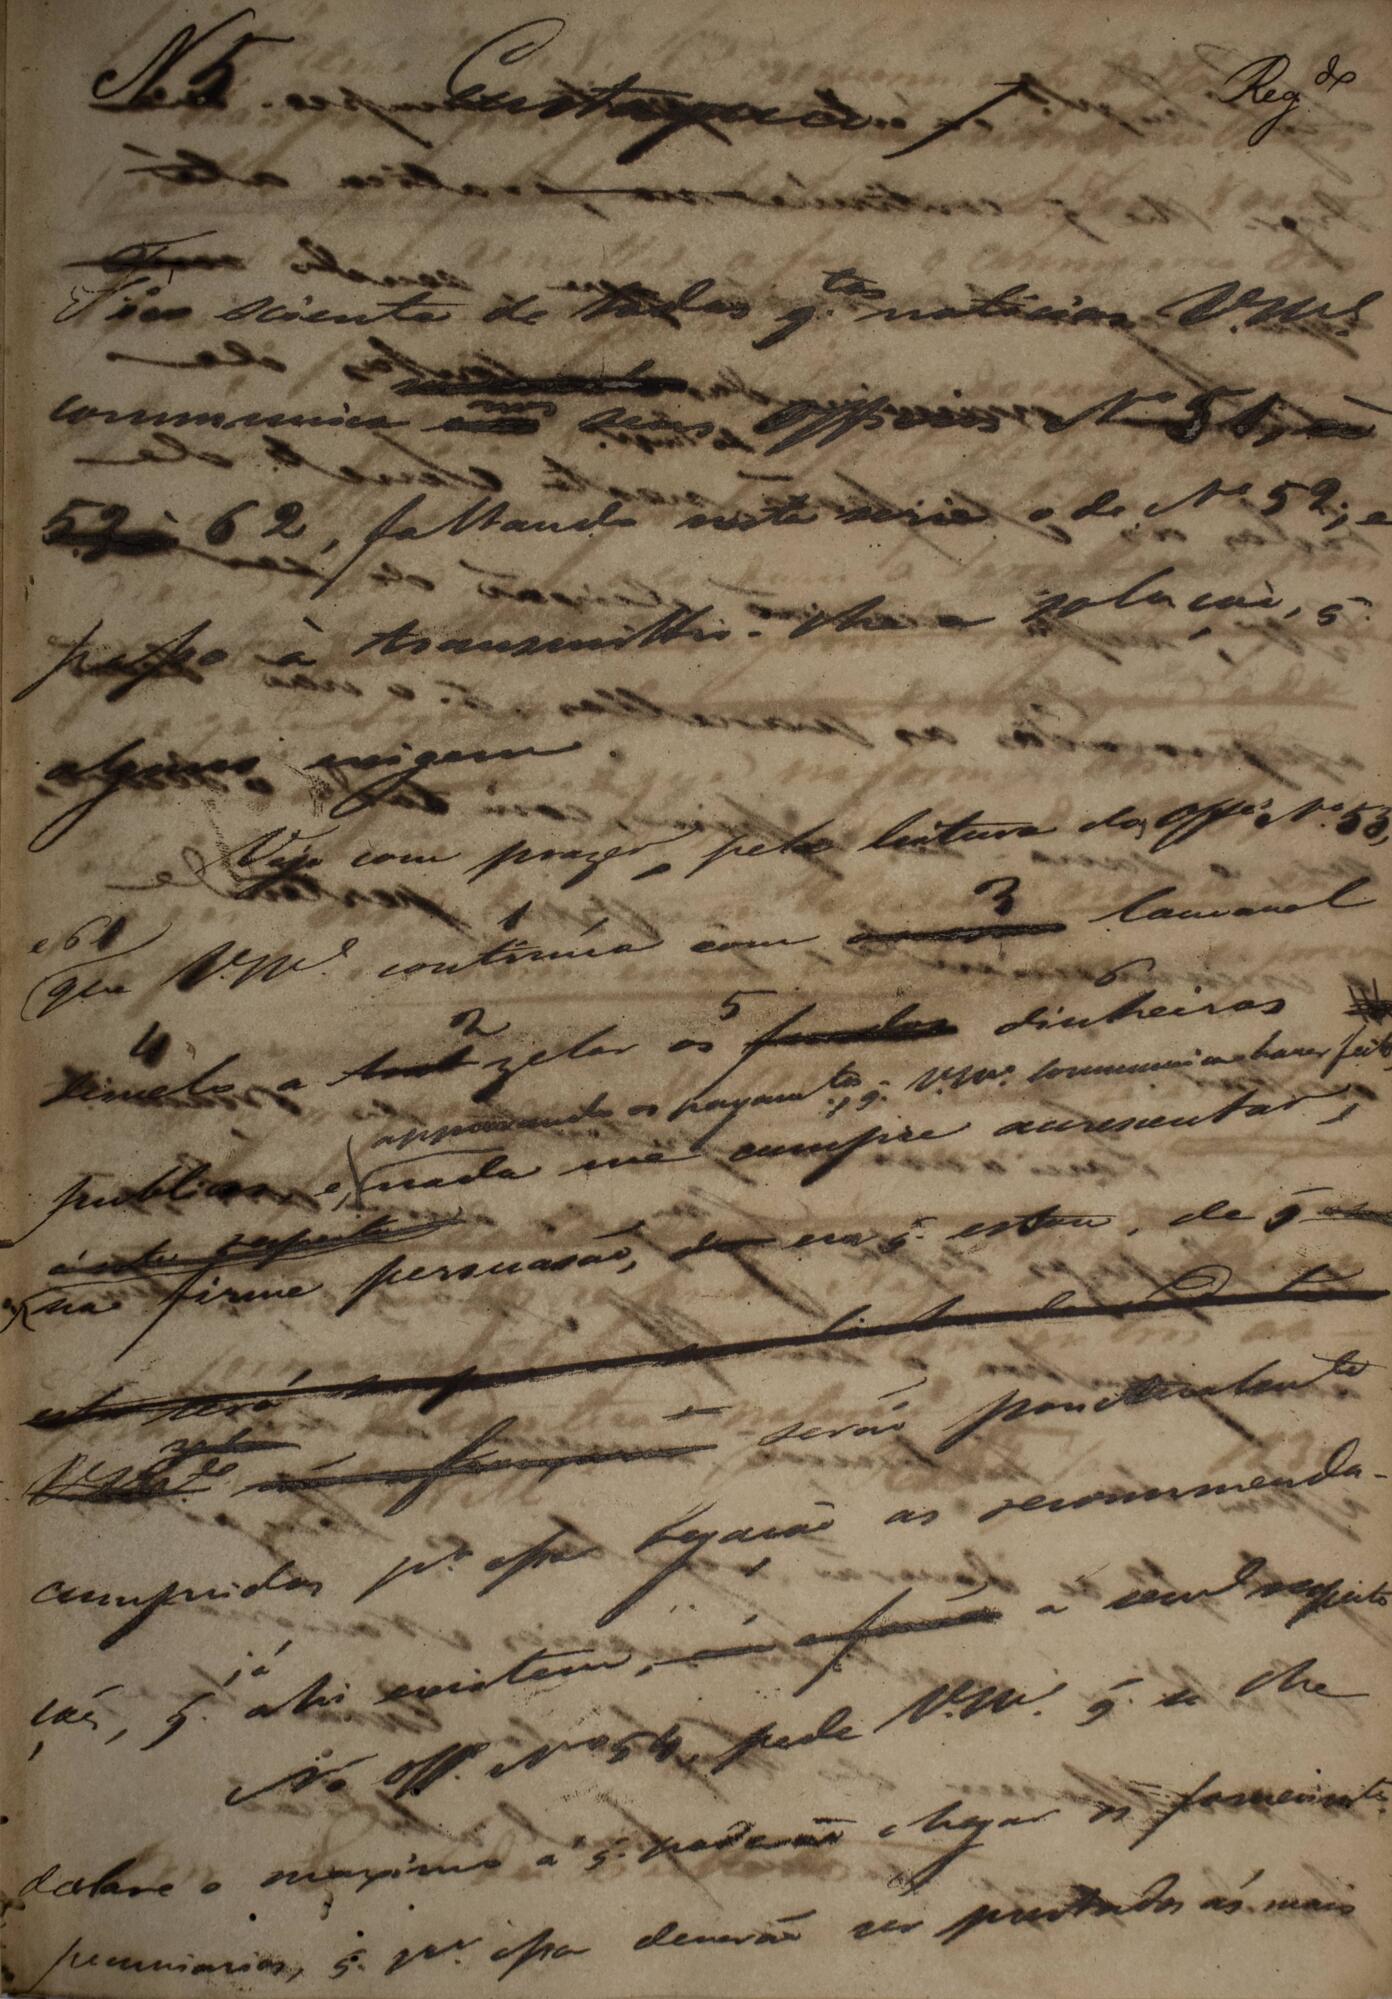 N. 5 Reg.do
Fico sciente de todas q.tas noticias V.M.ce
communica nos seus Officios N.o 51, à
52 à 62, faltando nesta serie o de N.o 52; e
passo à transmittir-lhe a solução, q.
alguns exigem.
Vejo com prazer, pela leitura dos Off.os N.os 53,
e 61
que V.M.ce continúa com 3 louvavel
1
4 2 zelar os 5 fundos dinheiros
6
approvando os pagam.tos, q. V.M.ce communica haver feito,
publicos, e, nada me cumpre accrescentar,
á este respeito
na firme persuasão, em q. estou, de q.
serão pontualmente
cumpridas p.r essa Legação as recommenda-
ções, q. já ahi existem, a semel. respeito
No Off. N.o 54, pede V.M.ce q. se lhe
declare o maximo á q. poderão chegar os fornecim.tos
pecuniarios, q. p.r essa deverão ser prestados ás mais